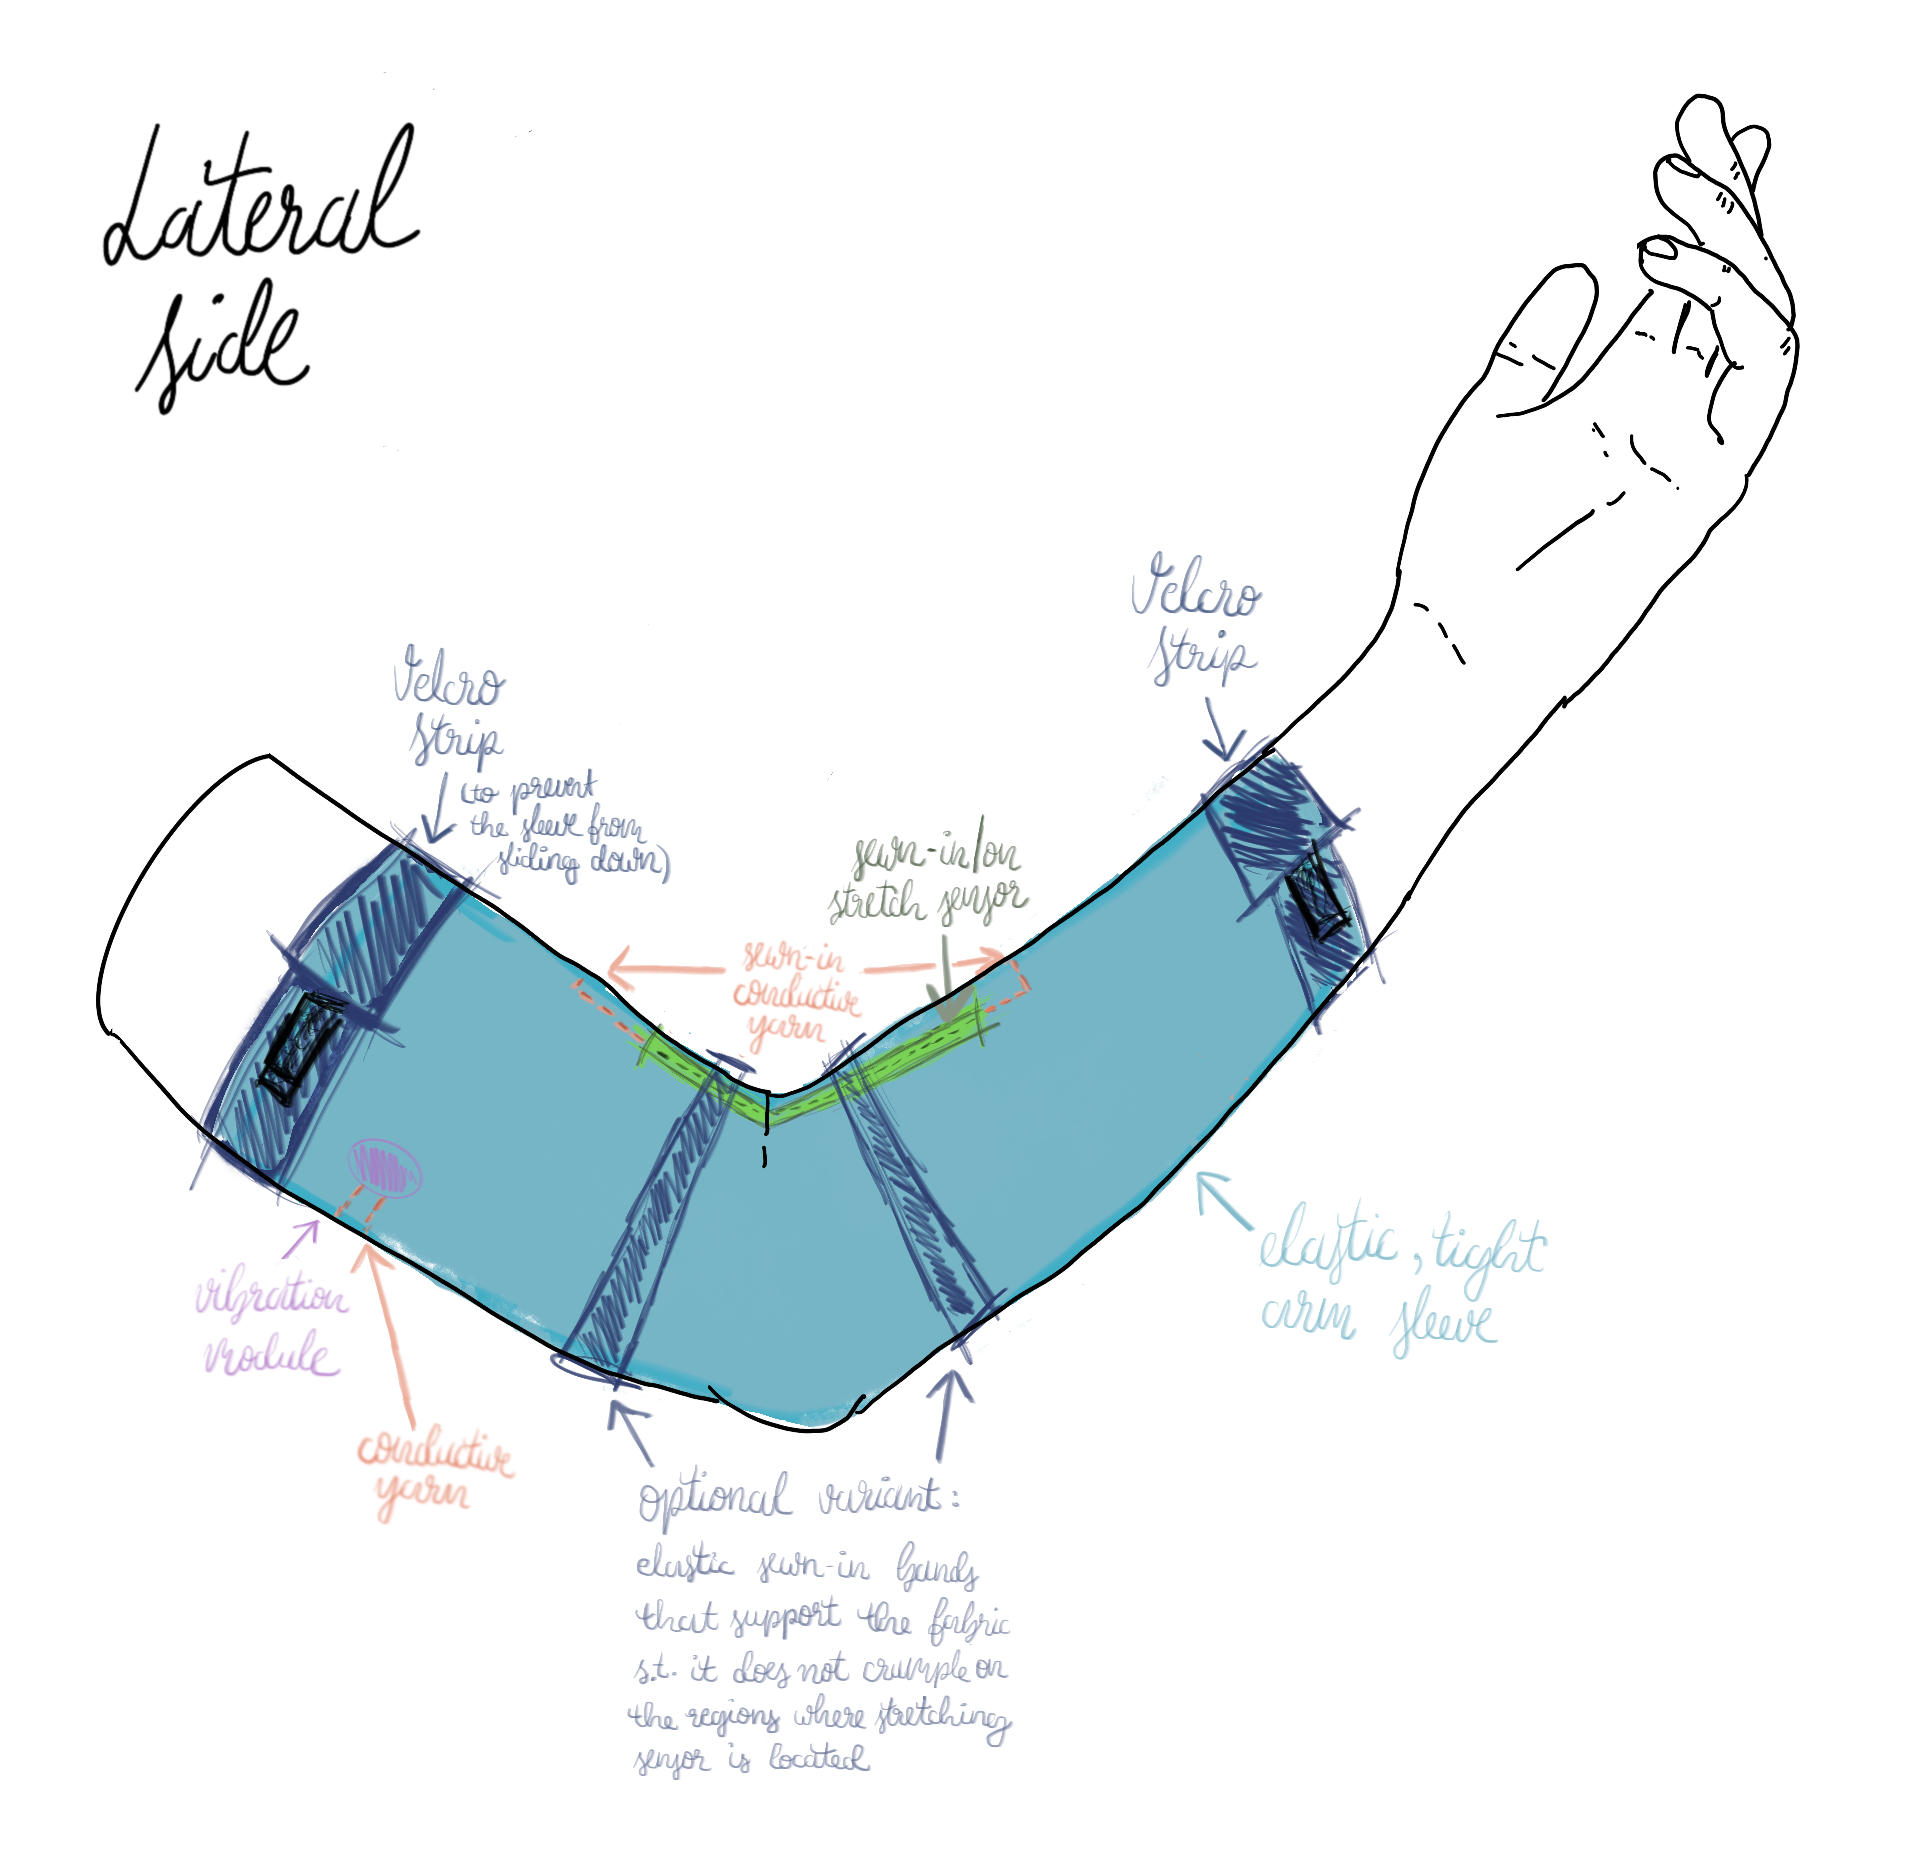 Lateral
side
Velcro
strip
Velcro
strip
(to prevent
the sleeve from
sliding down)
sewn-in/on
stretch sensor
sewn-in
conductive
yarn
elastic, tight
arm sleeve
vibration
module
conductive
yarn
optional variant:
elastic sewn-in bands
that support the fabric
s.t. it does not crumple on
the regions where stretching
sensor is located